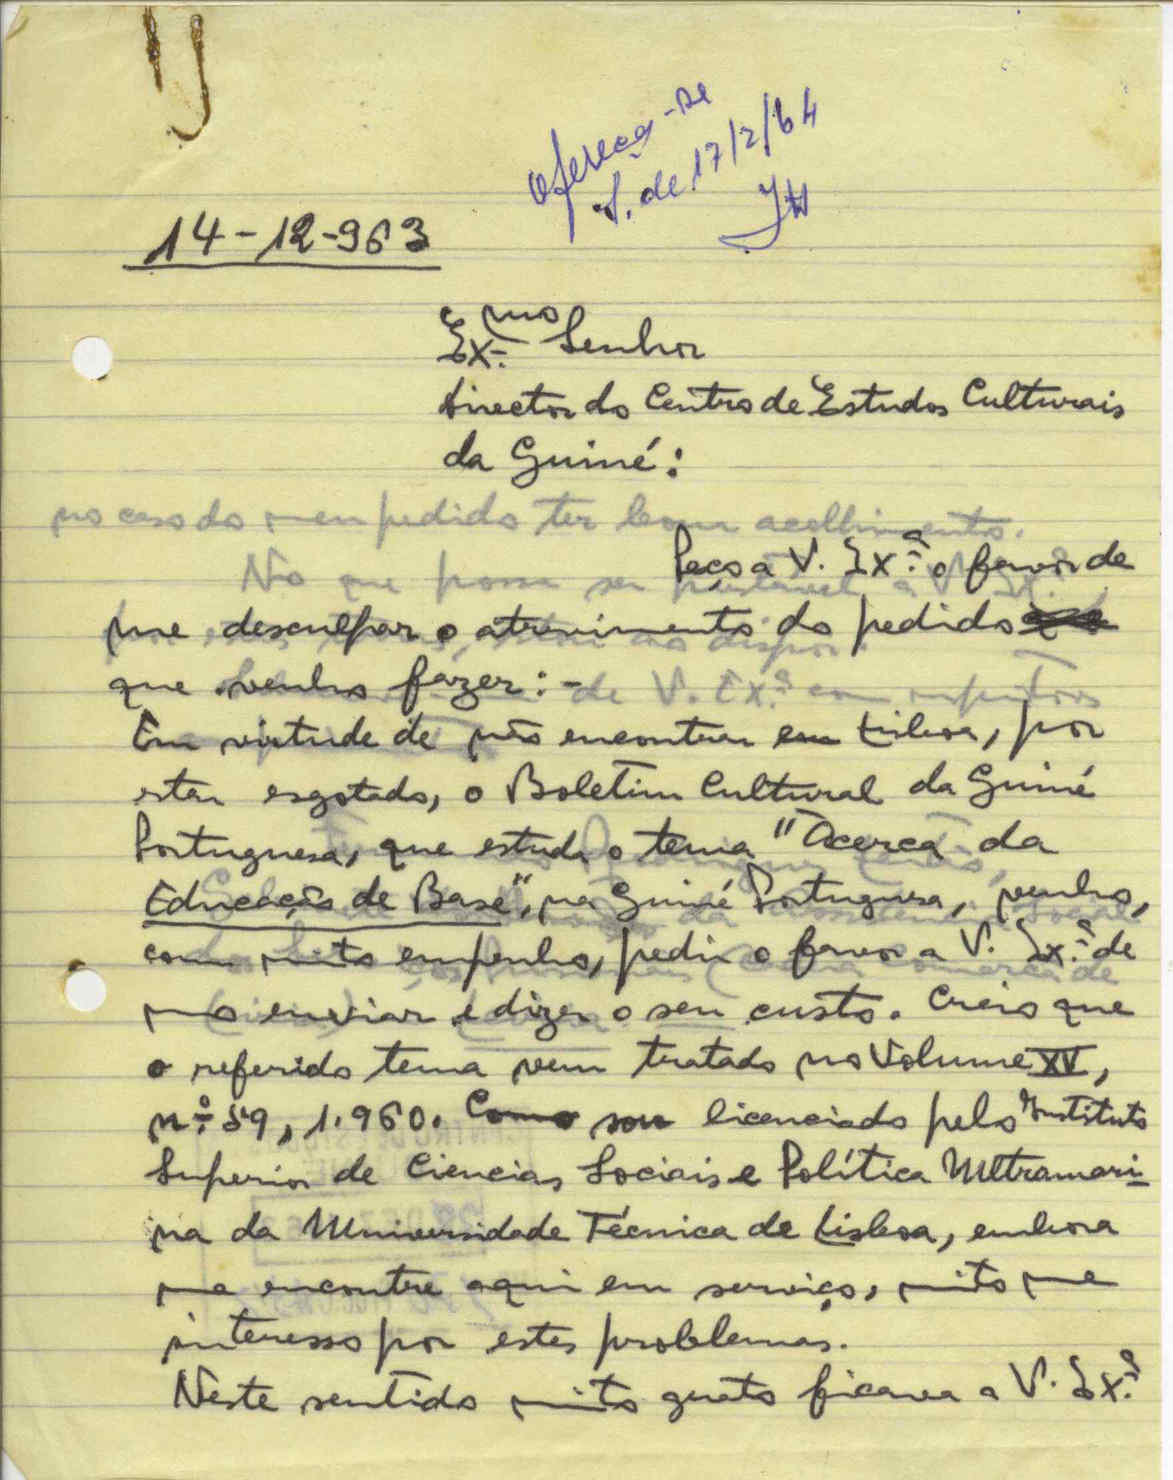 Ofereça-se
of. de 17/2/64
14-12-963
Ex.mo Senhor
Director do Centro de Estudos Culturais
da Guiné:
no caso do meu pedido ter bom acolhimento.
Peço a V. Ex.ª o favor de
No que possa ser prestável a V. Ex.ª
me desculpar o atrevimento do pedido
que venho fazer: -
de V. Ex.ª com
Em virtude de não encontrar em Lisboa, por
estar esgotado, o Boletim Cultural da Guiné
Portuguesa, que estuda o tema "Acerca da
Educação de Base", na Guiné Portuguesa, venho,
com muito empenho, pedir o favor a V. Ex.ª de
mo enviar e dizer o seu custo. Creio que
o referido tema vem tratado no Volume XV,
n.º 59, 1.960. Como sou licenciado pelo Instituto
Superior de Ciencias Sociais e Política Ultramari-
na da Universidade Técnica de Lisboa, embora
me encontre aqui em serviço, muito me
interesso por estes problemas.
Neste sentido muito grato ficava a V. Ex.ª